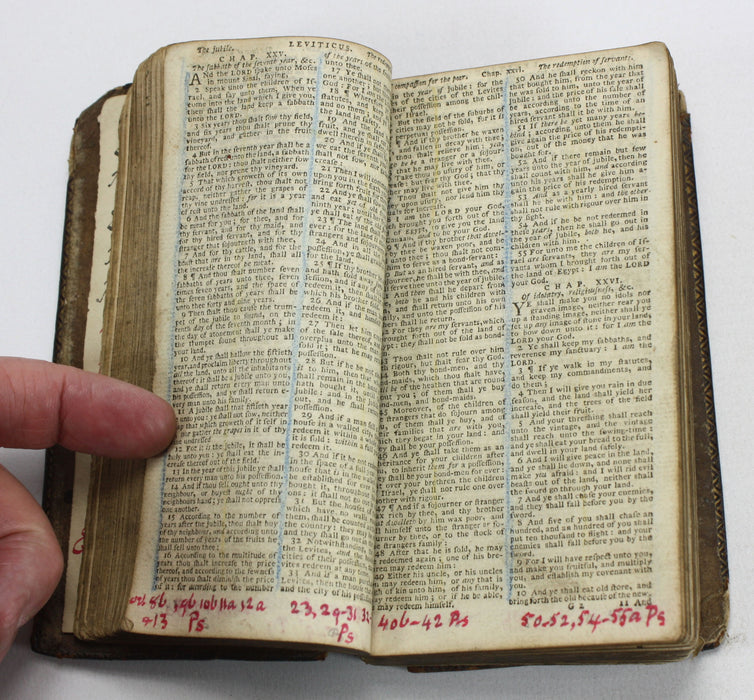 The jubile. LEVITICUS.
CHAP. XXV.
The ſabbath of the ſeventh year, &c.
ANd the LORD ſpake unto Moſes
in mount Sinai, ſaying,
2 Speak unto the children of Iſ-
rael, and ſay unto them, When ye
come into the land which I give you,
then ſhall the land keep a ſabbath
unto the LORD.
3 Six years thou ſhalt ſow thy field,
and ſix years thou ſhalt prune thy
vineyard, and gather in the fruit
thereof.
4 But in the ſeventh year ſhall be a
ſabbath of reſt unto the land, a ſabbath
for the LORD: thou ſhalt neither ſow
thy field, nor prune thy vineyard.
5 That which groweth of its own
accord of thy harveſt, thou ſhalt not
reap, neither gather the grapes of
thy vine undreſſed: for it is a year
of reſt unto the land.
6 And the ſabbath of the land ſhall
be meat for you; for thee, and for
thy ſervant, and for thy maid, and
for thy hired ſervant, and for thy
ſtranger that ſojourneth with thee,
7 And for thy cattle, and for the
beaſt that are in thy land, ſhall all
the increaſe thereof be meat.
8 ¶ And thou ſhalt number ſeven
ſabbaths of years unto thee, ſeven
times ſeven years, and the ſpace of
the ſeven ſabbaths of years ſhall be
unto thee forty and nine years.
9 Then ſhalt thou cauſe the trum-
pet of the jubile to ſound, on the
tenth day of the ſeventh month; in
the day of atonement ſhall ye make
the trumpet ſound throughout all
your land.
10 And ye ſhall hallow the fiftieth
year, and proclaim liberty throughout
all the land, unto all the inhabitants
thereof: it ſhall be a jubile unto you,
and ye ſhall return every man unto
his poſſeſſion, and ye ſhall return e-
very man unto his family.
11 A jubile ſhall that fiftieth year
be unto you: ye ſhall not ſow, neither
reap that which groweth of it ſelf in
it, nor gather the grapes in it of thy
vine undreſſed
12 For it is the jubile, it ſhall be
holy unto you: ye ſhall eat the in-
creaſe thereof out of the field.
13 In the year of this jubile ye ſhall
return every man unto his poſſeſſion.
14 And if thou ſell ought unto thy
neighbour, or buyeſt ought of thy
neighbours hand; ye ſhall not oppreſs
one another.
15 According to the number of
years after the jubile, thou ſhalt buy
of thy neighbour, and according unto
the number of years of the fruits he
ſhall ſell unto thee:
16 According to the multitude of
years thou ſhalt increaſe the price
thereof, and according to the fewneſs
of years thou ſhalt diminiſh the price
of it: for according to the number
of the years of the
unto thee.
17 Ye ſhall
one anoth
God: for I
18 ¶ W
ſtatutes, and
and do them
the land in ſafety.
19 And the
fruit, and ye
dwell therein
20 And if
we eat the ſev
ſhall not ſow,
creaſe:
21 Then I will com
upon you in the
bring forth fruit
22 And ye
and eat yet of
ninth year; unt
ye ſhall eat of
23 ¶ The land
ever: for the land
ſtrangers and ſojourn
24 And in all
poſſeſſion, ye ſhall
the land.
25 ¶ If thy brother
and hath ſold
ſeſſion, and if any
redeem it, then
which his brother
26 And if the
redeem it, and him
redeem it:
27 Then let him
of the ſale thereof
overplus unto the man
ſold it; that he may
poſſeſſion.
28 But if he be not
to him, then that
ſhall remain in the
hath bought it
bile: and in the jubile
out, and he ſhall
poſſeſſion.
29 And if a man
houſe in a walled
redeem it within
it is ſold: within
redeem it.
30 And if it be not
in the ſpace of a full
houſe that is in the
be eſtabliſhed for
bought it, throughout
ons: it ſhall not go
31 But the houſes
which have no wall
them, ſhall be counted
the country; they may
and they ſhall go out
32 Notwithſtanding
the Levites, and the
cities of their poſſeſſion
vites redeem at any
33 And if a man
Levites, then the houſe
and the city of his
compaſſion for the poor. Chap. xxvi. The redemption of ſervants.
in the year of jubile: for the
of the cities of the Levites
their poſſeſſion among the chil-
of Iſrael.
But the field of the ſuburbs of
cities may not be ſold, for it is
perpetual poſſeſſion.
¶ And if thy brother be waxen
and fallen in decay with thee;
thou ſhalt relieve him, yea,
he be a ſtranger or a ſojour-
that he may live with thee.
Take thou no uſury of him, or
creaſe: but fear thy God; that thy
brother may live with thee.
Thou ſhalt not give him thy
upon uſury, nor lend him thy
I am the LORD your God,
brought you forth out of the
of Egypt, to give you the land
Canaan, and to be your God.
¶ And if thy brother that dwelleth
by thee be waxen poor, and be
unto thee; thou ſhalt not com-
him to ſerve as a bond-ſervant:
But as an hired ſervant, and as
ſojourner, he ſhall be with thee, and
ſerve thee unto the year of jubile.
And then ſhall he depart from
both he and his children with
and ſhall return unto his own
family, and unto the poſſeſſion of his
For they are my ſervants, which
brought forth out of the land of
Egypt; they ſhall not be ſold as bond-
Thou ſhalt not rule over him
rigour, but ſhalt fear thy God.
Both thy bond-men, and thy
maids, which thou ſhalt have,
ſhall be of the heathen that are round
you; of them ſhall ye buy
bond-men, and bond-maids.
45 Moreover, of the children of
ſtrangers that do ſojourn among
of them ſhall ye buy, and of
families that are with you,
which they begat in your land: and
they ſhall be your poſſeſſion.
46 And ye ſhall take them as an
inheritance for your children after
to inherit them for a poſſeſſion,
they ſhall be your bond-men for ever:
but over your brethren the children
of Iſrael, ye ſhall not rule one over
another with rigour.
47 ¶ And if a ſojourner or ſtranger
wax rich by thee, and thy brother
that dwelleth by him wax poor, and
ſell himſelf unto the ſtranger or ſo-
journer by thee, or to the ſtock of
the ſtrangers family:
48 After that he is ſold, he may
be redeemed again; one of his bre-
thren may redeem him:
49 Either his uncle, or his uncles
ſon may redeem him, or any that is
nigh of kin unto him, of his family,
may redeem him; or if he be able,
may redeem himſelf.
50 And he ſhall reckon with him
that bought him, from the year that
he was ſold to him, unto the year of
jubile: and the price of his ſale ſhall
be according unto the number of
years, according to the time of an
hired ſervant ſhall it be with him.
51 If there be yet many years be-
hind, according unto them he ſhall
give again the price of his redempti-
on, out of the money that he was
bought for.
52 And if there remain but few
years unto the year of jubile, then he
ſhall count with him, and according
unto his years ſhall he give him a-
gain the price of his redemption.
53 And as a yearly hired ſervant
ſhall he be with him: and the other
ſhall not rule with rigour over him in
thy ſight.
54 And if he be not redeemed in
theſe years, then he ſhall go out in
the year of jubile, both he, and his
children with him.
55 For unto me the children of Iſ-
rael are ſervants, they are my ſer-
vants whom I brought forth out of
the land of Egypt: I am the LORD
your God.
CHAP. XXVI.
Of idolatry, religiouſneſs, &c.
YE ſhall make you no idols nor
graven image, neither rear you
up a ſtanding image, neither ſhall ye
ſet up any image of ſtone in your land,
to bow down unto it: for I am the
LORD your God.
2 Ye ſhall keep my ſabbaths, and
reverence my ſanctuary: I am the
LORD.
3 ¶ If ye walk in my ſtatutes,
and keep my commandments, and
do them;
4 Then I will give you rain in due
ſeaſon, and the land ſhall yield her
increaſe, and the trees of the field
ſhall yield their fruit.
5 And your threſhing ſhall reach
unto the vintage, and the vintage
ſhall reach unto the ſowing-time:
and ye ſhall eat your bread to the full,
and dwell in your land ſafely.
6 And I will give peace in the land,
and ye ſhall lie down, and none ſhall
make you afraid: and I will rid evil
beaſts out of the land, neither ſhall
the ſword go through your land.
7 And ye ſhall chaſe your enemies,
and they ſhall fall before you by the
ſword.
8 And five of you ſhall chaſe an
hundred, and an hundred of you ſhall
put ten thouſand to flight: and your
enemies ſhall fall before you by the
ſword.
9 For I will have reſpect unto you,
and make you fruitful, and multiply
you, and eſtabliſh my covenant with
you.
10 And ye ſhall eat old ſtore, and
bring forth the old becauſe of the new.
G 2 11 And
8b, 9b 10b 11a 12a
+13 Ps.
23, 29-31
Ps
40b-42 Ps
50-52, 54-55a Ps